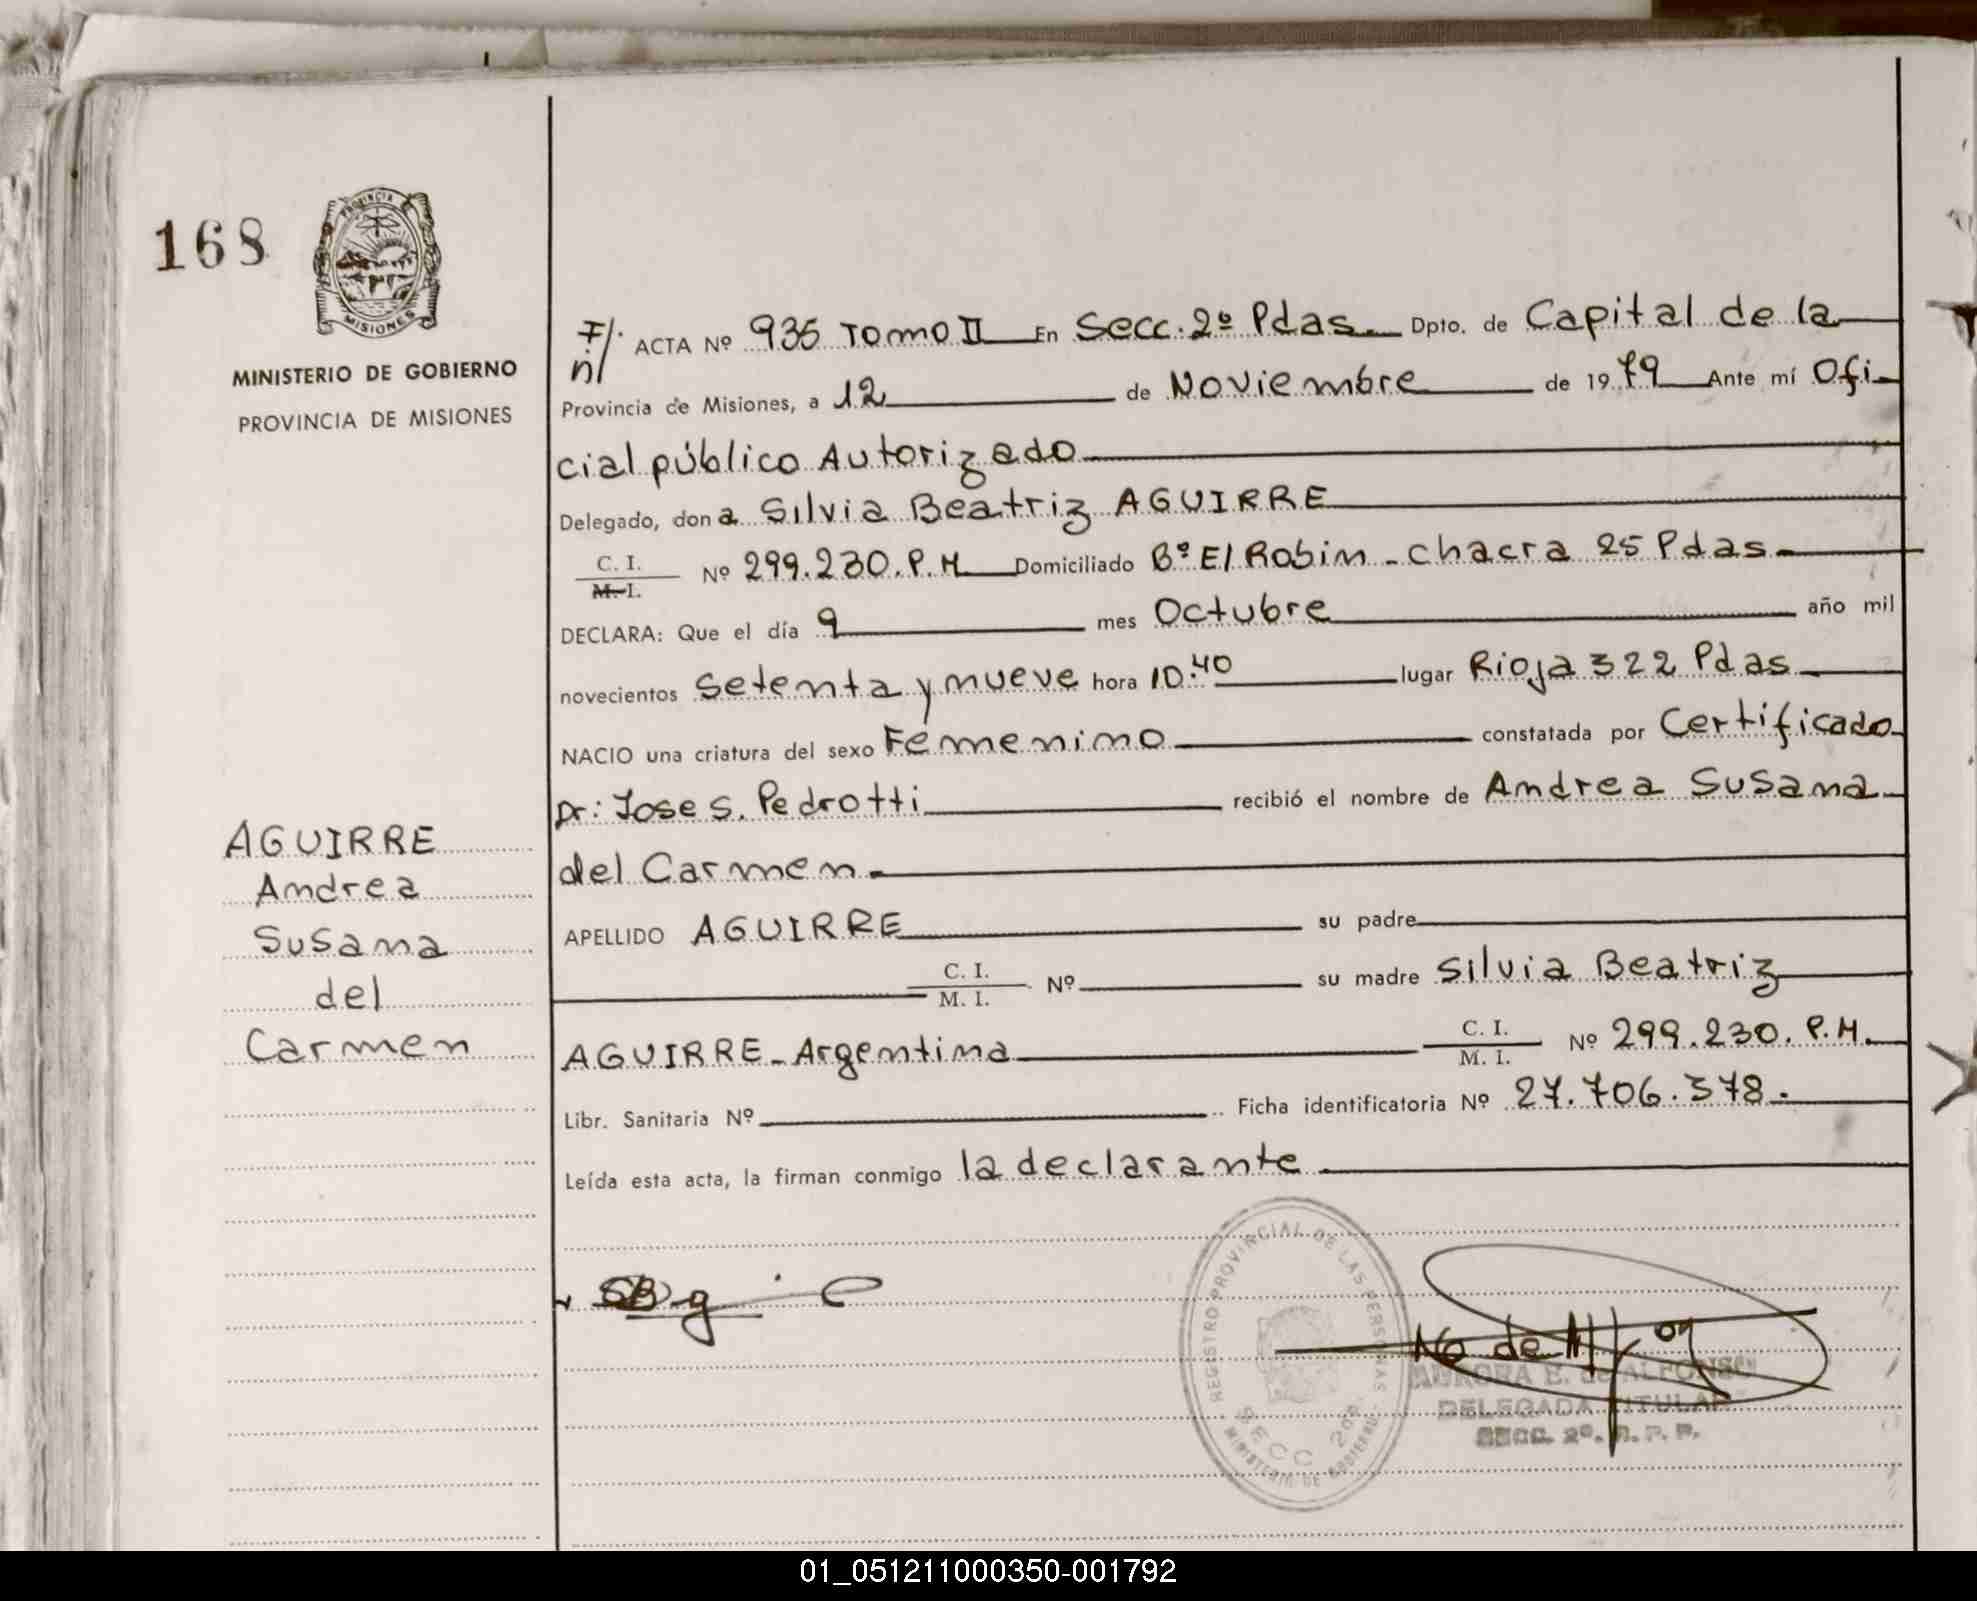 168
PROVINCIA
MISIONES
MINISTERIO DE GOBIERNO
PROVINCIA DE MISIONES
AGUIRRE
Andrea
Susana
del
Carmen
F/.
n/
ACTA Nº 935 Tomo II En Secc. 2º Pdas. Dpto. de Capital de la
Provincia de Misiones, a 12 de Noviembre de 1979 Ante mí Ofi
cial público Autorizado
Delegado, dona Silvia Beatriz AGUIRRE
C. I.
M. I. Nº 299.230. P. M Domiciliado Bº El Robin - chacra 25 Pdas.
DECLARA: Que el día 9 mes Octubre año mil
novecientos setenta y nueve hora 10.40 lugar Rioja 322 Pdas
NACIO una criatura del sexo Femenino constatada por Certificado
Dr: Jose S. Pedrotti recibió el nombre de Andrea Susana
del Carmen.
APELLIDO AGUIRRE su padre
C. I.
M. I. Nº su madre Silvia Beatriz
AGUIRRE - Argentina C. I.
M. I. Nº 299.230. P. M.
Libr. Sanitaria Nº Ficha identificatoria Nº 27.706.378.
Leída esta acta, la firman conmigo la declarante.
REGISTRO PROVINCIAL DE LAS PERSONAS
SECC 2da.
MINISTERIO DE GOBIERNO
AURORA E. de ALFONSO
DELEGADA TITULAR
SECC. 2º. R. P. P.
01_051211000350-001792